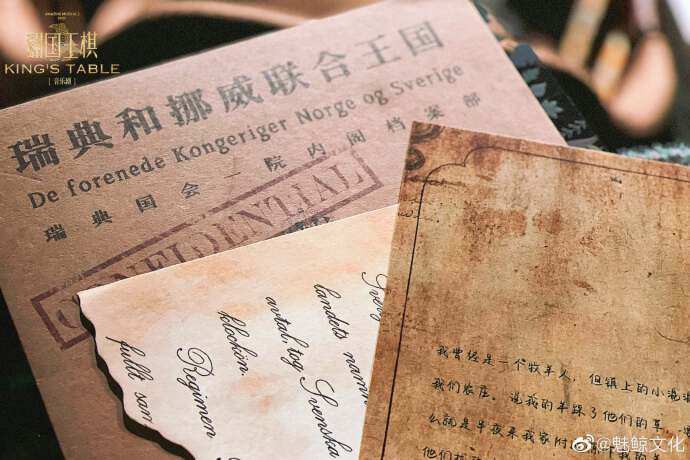 AMAZING MUSICAL 2
国王棋
KING'S TABLE
[音乐剧]
瑞典和挪威联合王国
De forenede Kongeriger Norge og Sverige
瑞典国会一院内阁档案部
CONFIDENTIAL
Sverig
landets namn
avtal, tog Svenska
klockön.
Regimen
fullt som
我曾经是一个牧羊人,但镇上的小混混
我们农庄。说我的羊踩了他们的草
么就是半夜来我家附
他们
@魅鲸文化